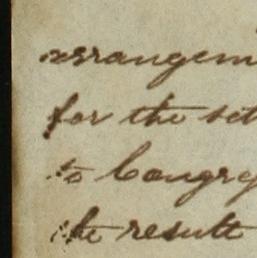 arrangem
for the set
to Congre
the result